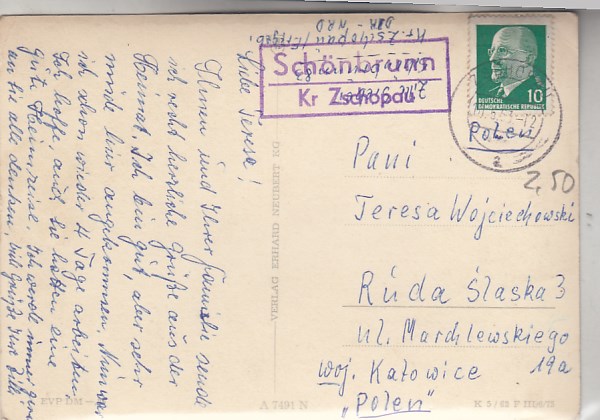 Liebe Terese!
Ihnen und Ihrer Familie sende
ich recht herzliche Grüße aus der
Heimat. Ich bin gut, aber sehr
müde hier angekommen. Nun war
ich schon wieder 4 Tage arbeiten.
Ich hoffe, auch Sie hatten eine
gute Heimreise. Ich werde immer gern
an Sie alle denken. Viele Grüße Ihre
EVP DM
A 7491 N
VERLAG ERHARD NEUBERT KG
Kr. Zschopau/Erzgeb.
DDR
Schönbrunn
Kr Zschopau
10
DEUTSCHE
DEMOKRATISCHE REPUBLIK
Polen
a
2,50
Pani
Teresa Wojciechowski
Ruda Śląska 3
ul. Marchlewskiego
19a
woj. Katowice
„Polen"